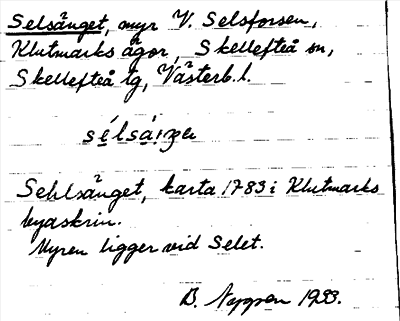 Selsänget, myr V. Selsforsen,
Klutmarks ägor, Skellefteå sn,
Skellefteå tg, Västerb. l.
Sehlsänget, karta 1783 i Klutmarks
byaskrin.
Myren ligger vid Selet.
B. Nygren 1933.